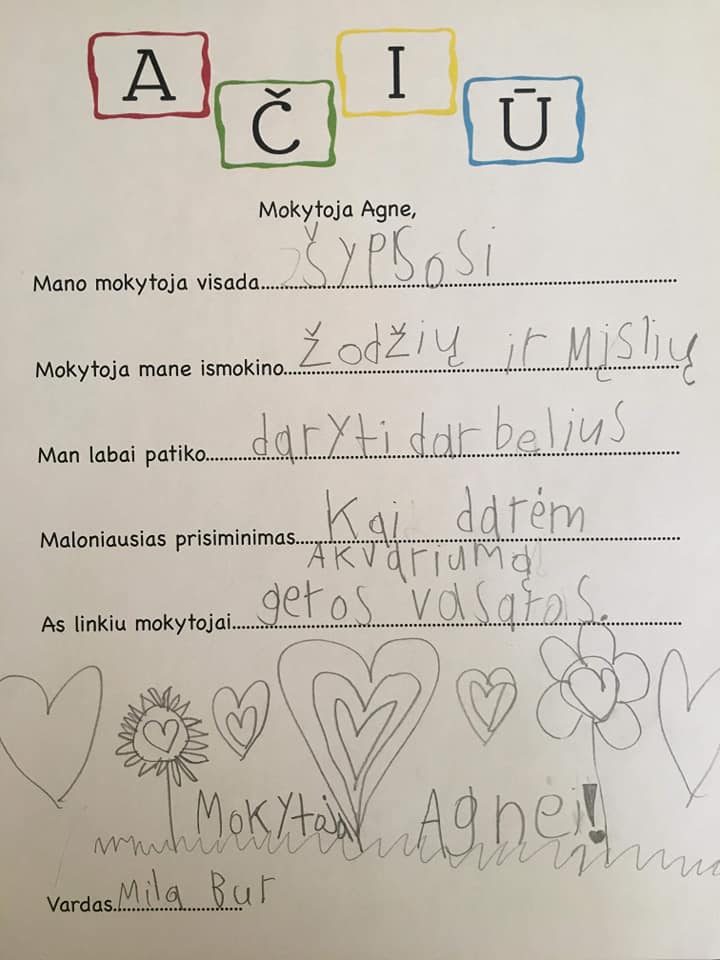 AČIŪ
Mokytoja Agne,
Mano mokytoja visada..... Šypsosi
Mokytoja mane ismokino..... Žodžių ir Mįslių
Man labai patiko..... daryti darbelius
Maloniausias prisiminimas..... Kai darėm
Akvariumą
As linkiu mokytojai..... geros vasąros.
Mokytojai Agnei!
Vardas..... Mila Bur